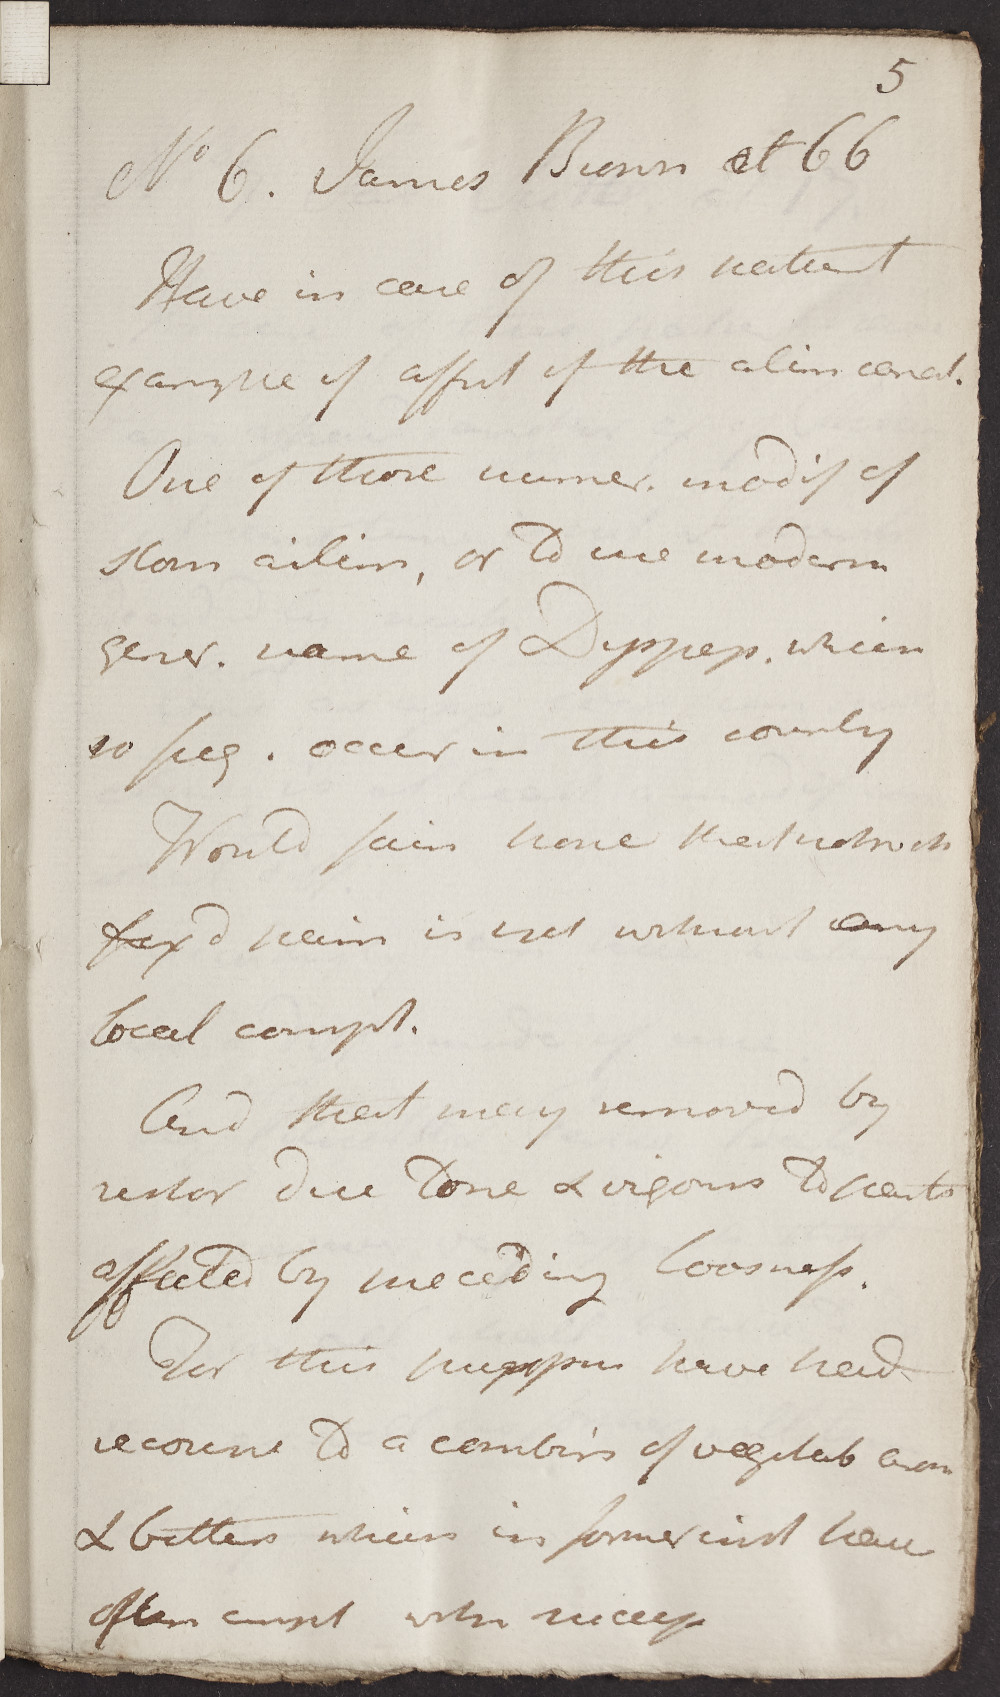 5
No 6. James Brown æt 66
Have in case of this patient
example of affect of the alim canal.
One of those numer. modif of
stom ailm, or to use modern
gener. name of Dyspeps. which
so freq. occur in this country
Would fain hope that notwith
fix'd pain is yet without any
local compl.
And that may removed by
restor due tone & vigour to parts
affected by preceding loosness.
For this purpose have had
recourse to a combin of vegetab arom
& bitters which in former inst have
often empl with success